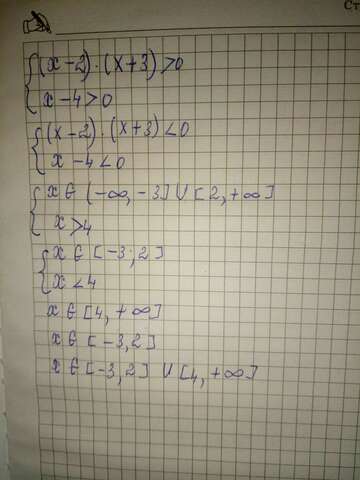 Ст
{(x-2)·(x+3)>0
x-4>0
{(x-2)·(x+3)<0
x-4<0
{x ∈ (-∞,-3] ∪ [2,+∞]
x>4
{x ∈ [-3;2]
x<4
x ∈ [4,+∞]
x ∈ [-3,2]
x ∈ [-3,2] ∪ [4,+∞]